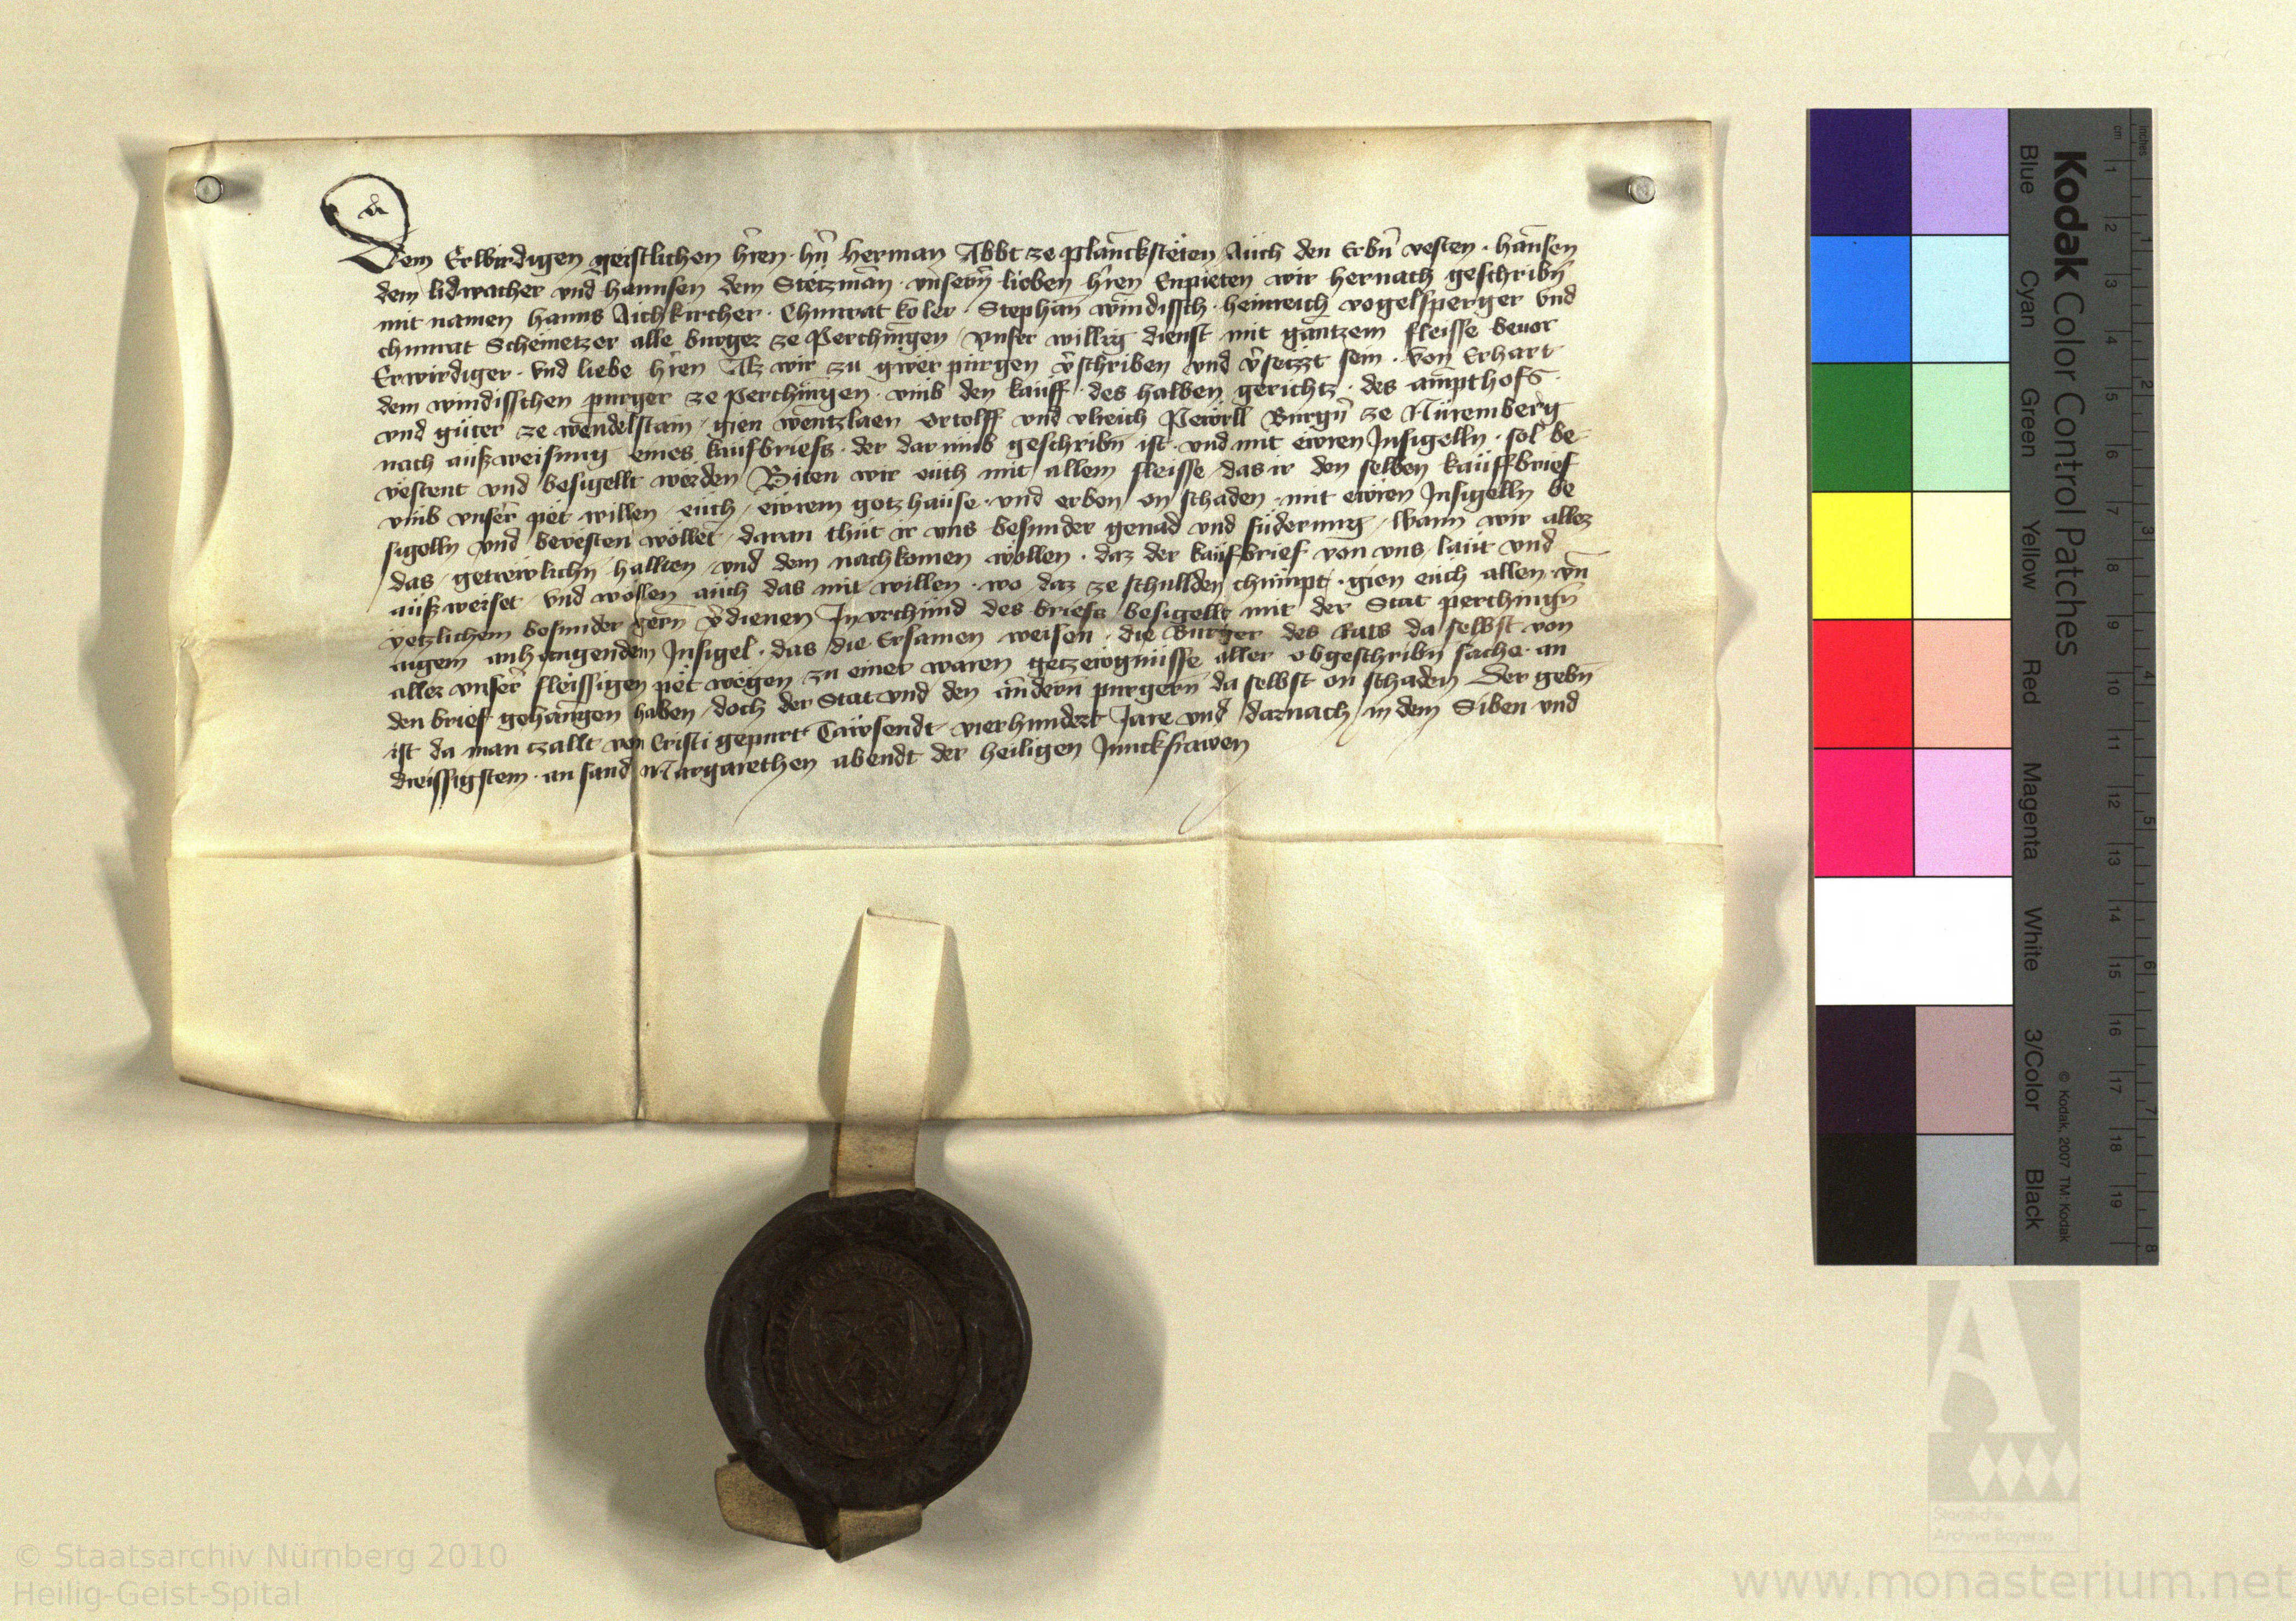 Dem Erwirdigen geistlichen hr̄en · hn̄ Herman Abbt ze planckstëten Aüch den Erbn̄ vesten · hannsen
dem lidwacher vnd hannsen dem Stetzman · vnsern̄ lieben hr̄en Enpieten wir hernach geschribn̄
mit namen hanns Aichkircher · Chunrat koler · Stephan windissch · heinreich vogelsperger vnd
chunrat Scheinetzer alle burger ze Perchingen vnser willig dienst mit gantzem fleisse beuor
Erwirdiger · vnd liebe hr̄en Alz wir zu gwer pürgen v̄schriben vnd v̄setzzt sein · von Erhart
dem windisschen purger ze perchingen · vmb den kauff · des halben gerichtz · des ampthofs ·
vnd güter ze wendelstain gien wentzlaen ortolff vnd vlreich Pewrll Burgn̄ ze Nüremberg
nach außweisung eines kaufbriefs · der dar vmb geschribn̄ ist · vnd mit ewren Insigelln · sol be-
vestent vnd besigellt werden Biten wir euch mit allem fleisse das ir den selben kauffbrief
vmb vnser̄ pet willen euch ewrem gotzhause · vnd erben on schaden · mit ewren Insigelln be
sigelln vnd bevesten wöllet daran thüt ir vns besunder genad vnd füderung wann wir allez
das getrewlichn̄ hallten vnd dem nachkomen wöllen · daz der kaufbrief von vns laüt vnd
außweiset vnd wöllen aüch das mit willen · wo daz ze schullden chümpt · gien eüch allen · vn̄
yetzlichem besunder gern̄ v̄dienen In vrchünd des briefs besigellt mit der Stat perchingn̄
aigem anhangendem Insigel · das die Ersamen weisen · die Burger des Rats da selbst von
allez vnser̄ fleissigen pet wegen zu einer waren getzewgnüsse aller obgeschribn̄ sache · an
den brief gehangen haben doch der Stat vnd den andern purgern̄ da selbst on schaden Der gebn̄
ist da man czallt von Cristi gepurt Tawsendt vierhundert Jare vnd darnach in dem Siben vnd
dreissigstem · an sand Margarethen abendt der heiligen Junckfrawen
Kodak Color Control Patches
Blue Cyan Green Yellow Red Magenta White 3/Color Black
© Kodak, 2007 TM: Kodak
cm 1 2 3 4 5 6 7 8 9 10 11 12 13 14 15 16 17 18 19
inches 1 2 3 4 5 6 7 8
Staatliche
Archive Bayerns
© Staatsarchiv Nürnberg 2010
Heilig-Geist-Spital
www.monasterium.net